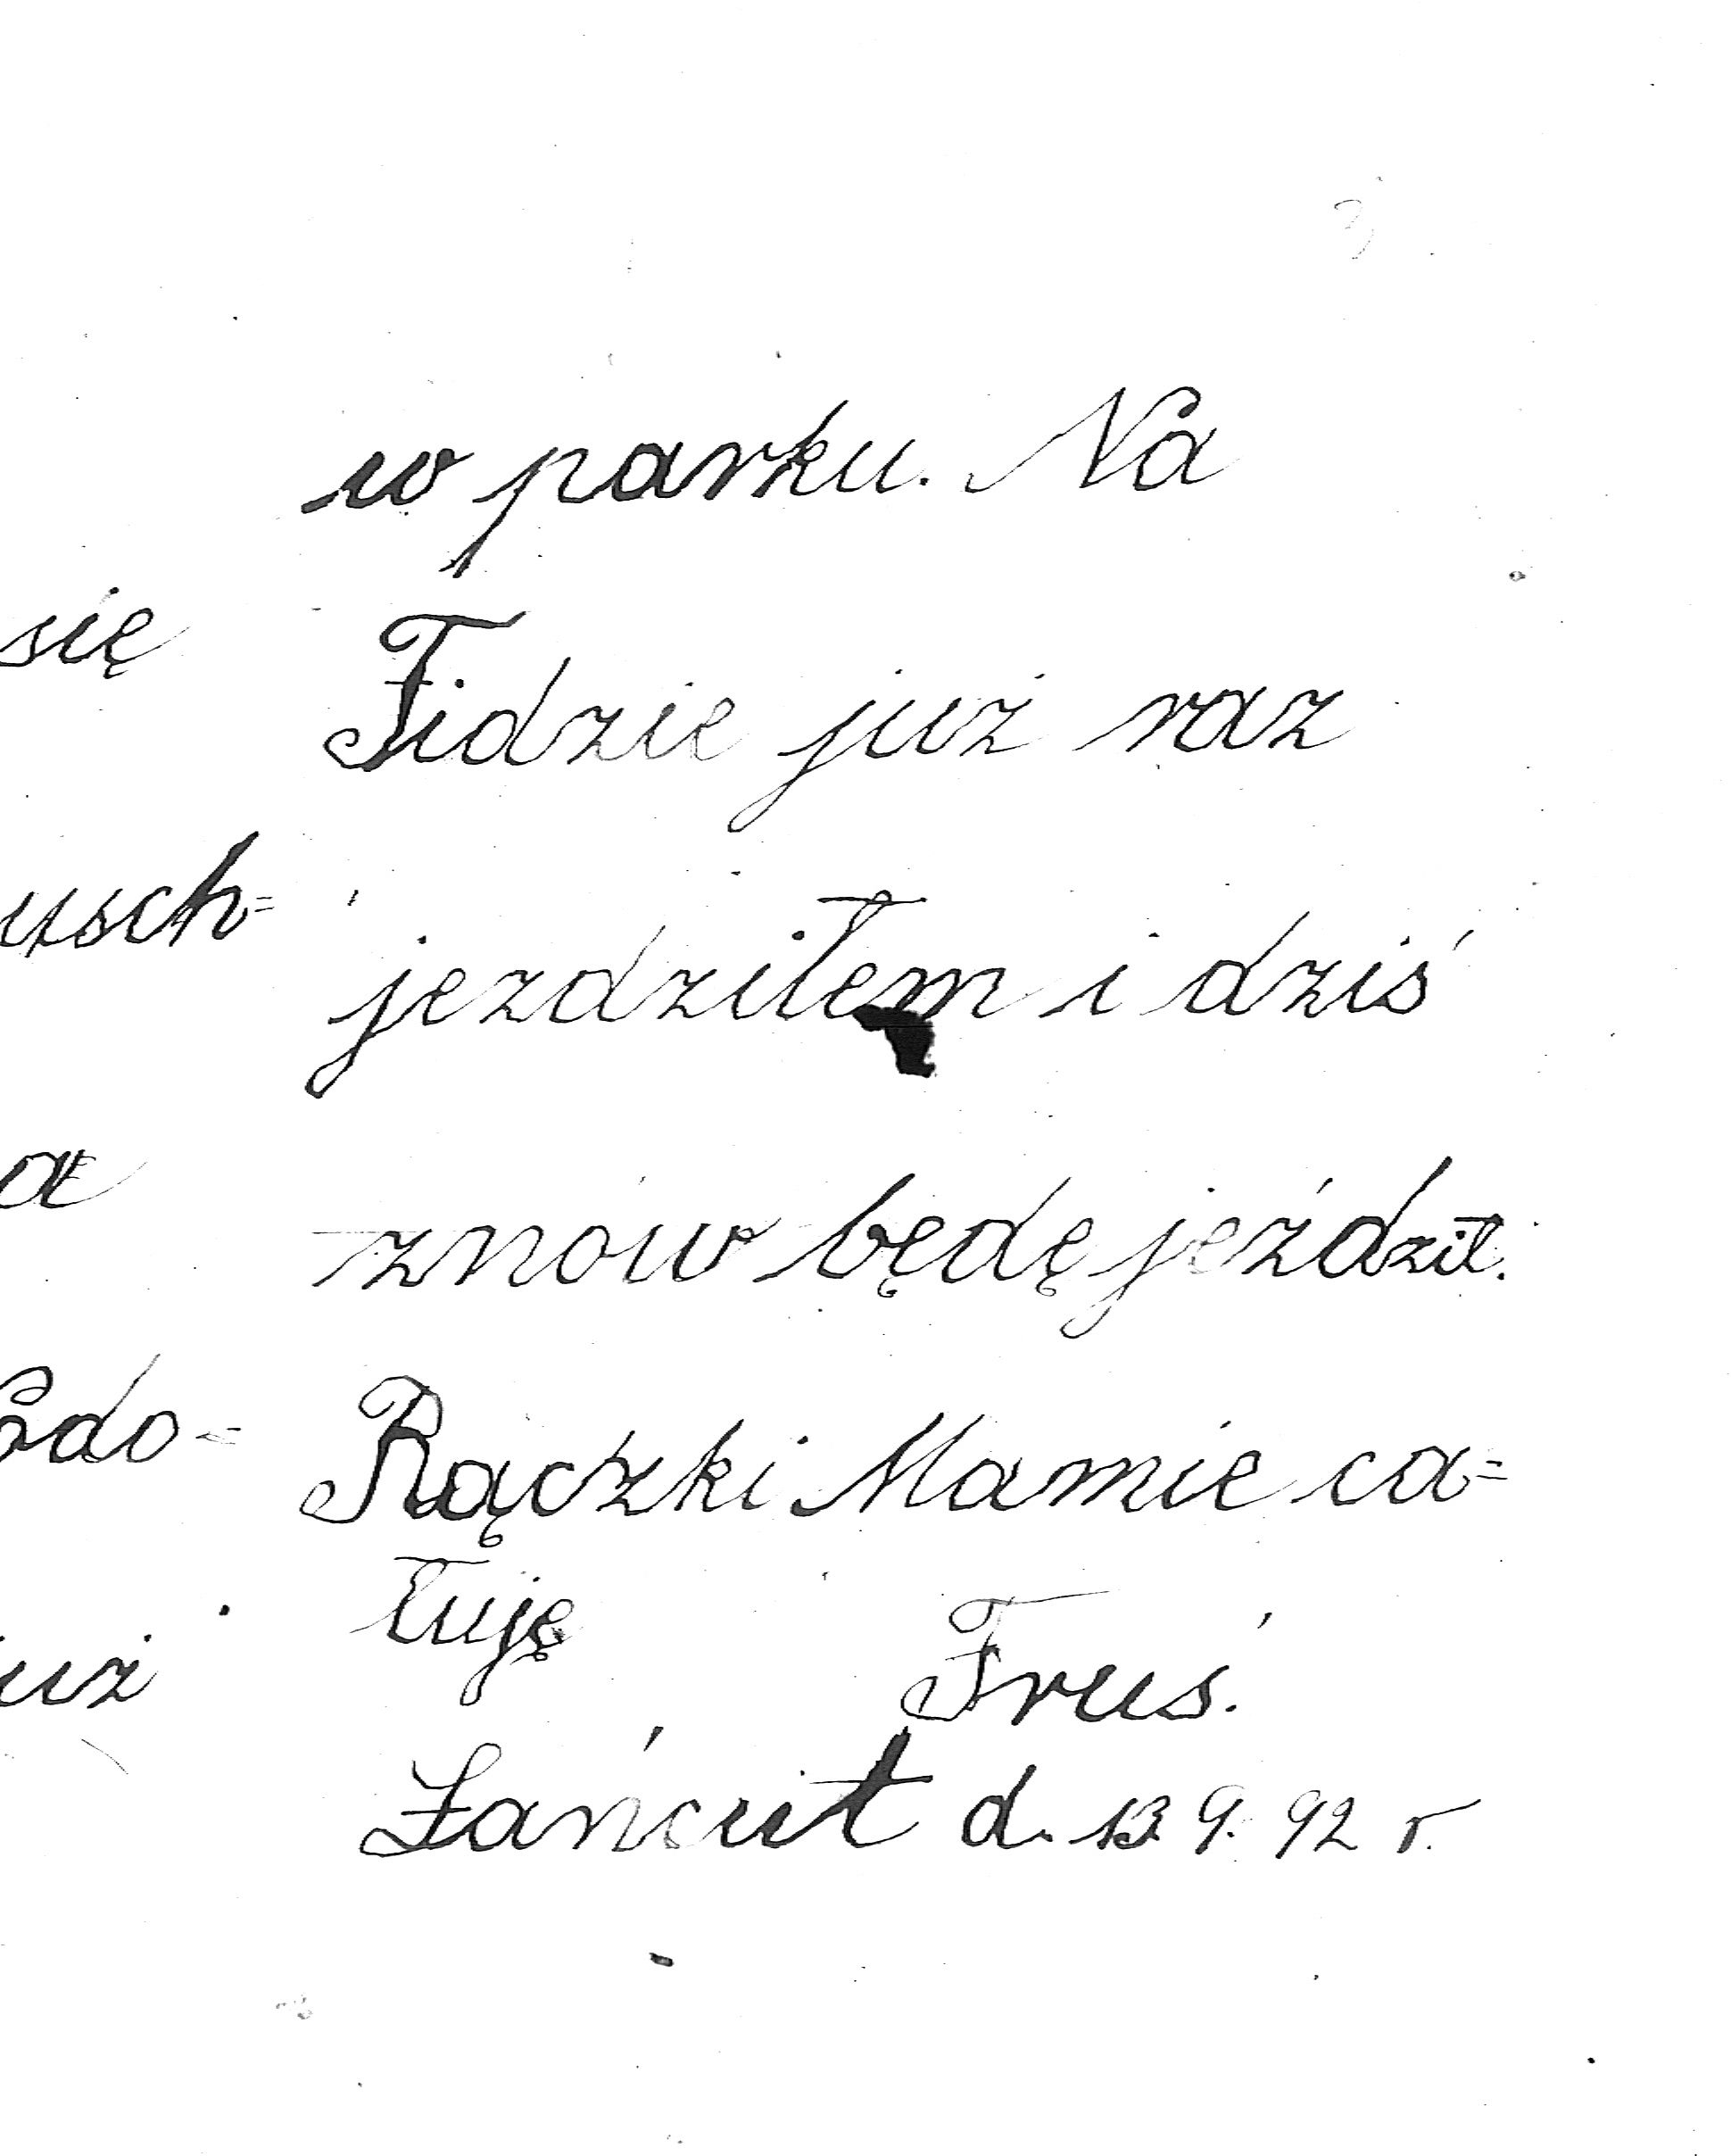 w parku. Na
się
Fidzie już raz
usch=
jezdziłem i dziś
znów będę jeździł.
Rączki Mamie ca=
łuję
Fruś.
uż
Łańcut d. 13. 9. 92 r.